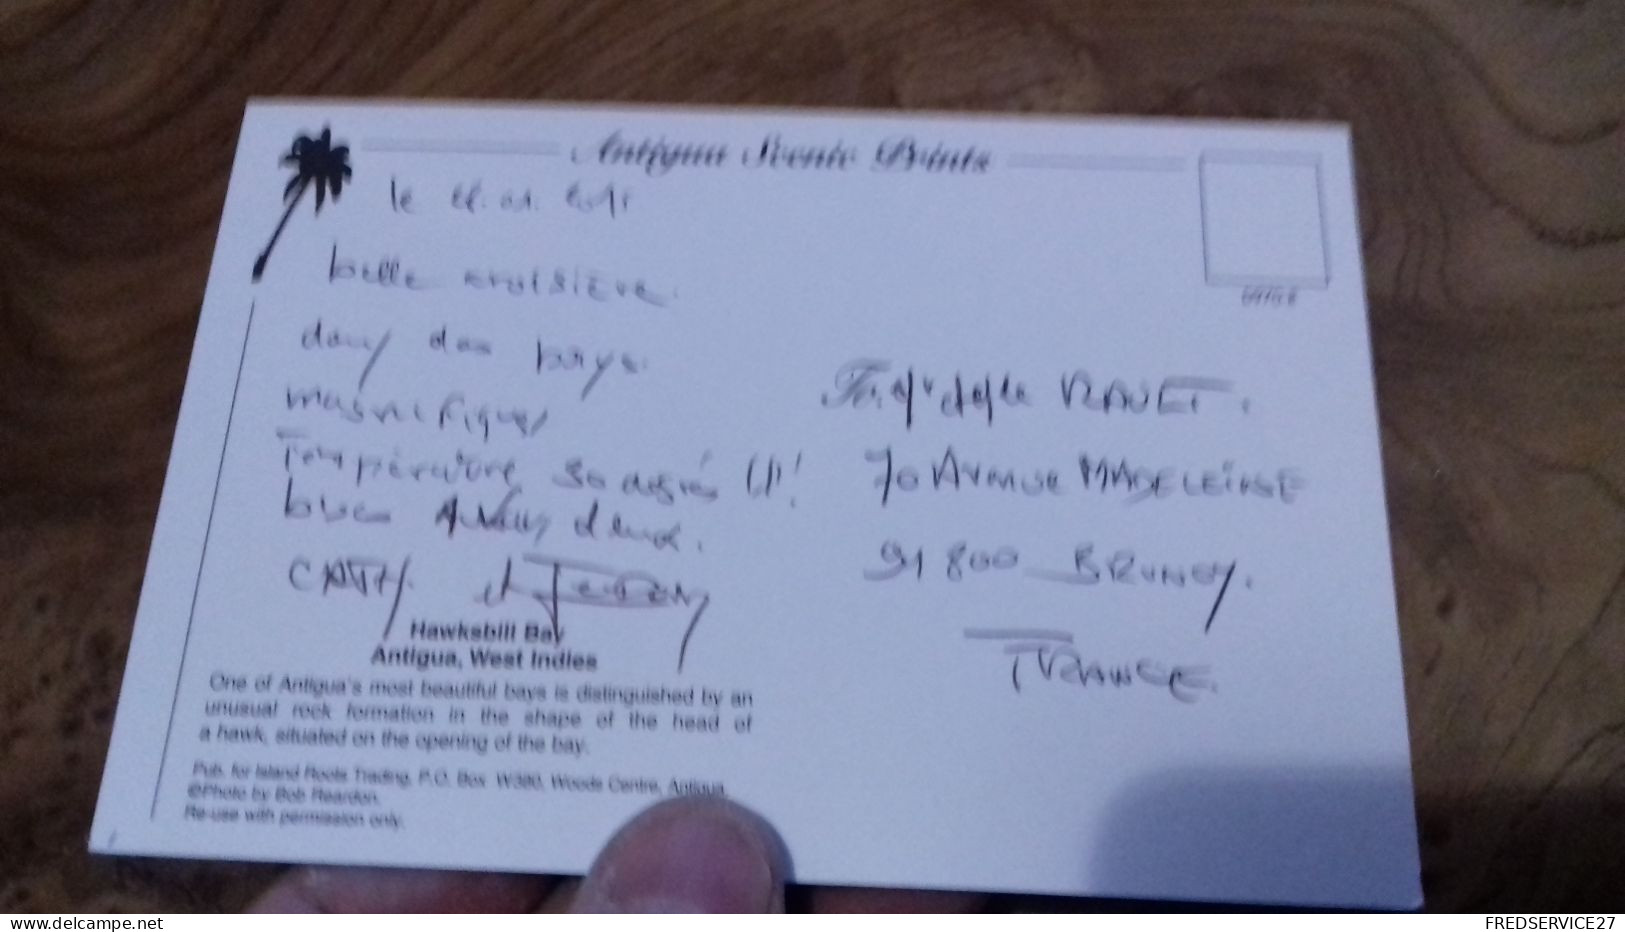 Antigua Scenic Prints
le
belle croisière
dans des pays
magnifiques
Température 30 degrés !!!
bises à vous deux.
CATHY. et
Hawksbill Bay
Antigua, West Indies
One of Antigua's most beautiful bays is distinguished by an
unusual rock formation in the shape of the head of
a hawk, situated on the opening of the bay.
Pub. for Island Roots Trading, P.O. Box W380, Woods Centre, Antigua
©Photo by Bob Reardon.
Re-use with permission only.
RAVET.
70 AVENUE MADELEINE
91 800 BRUNOY.
FRANCE.
FREDSERVICE27